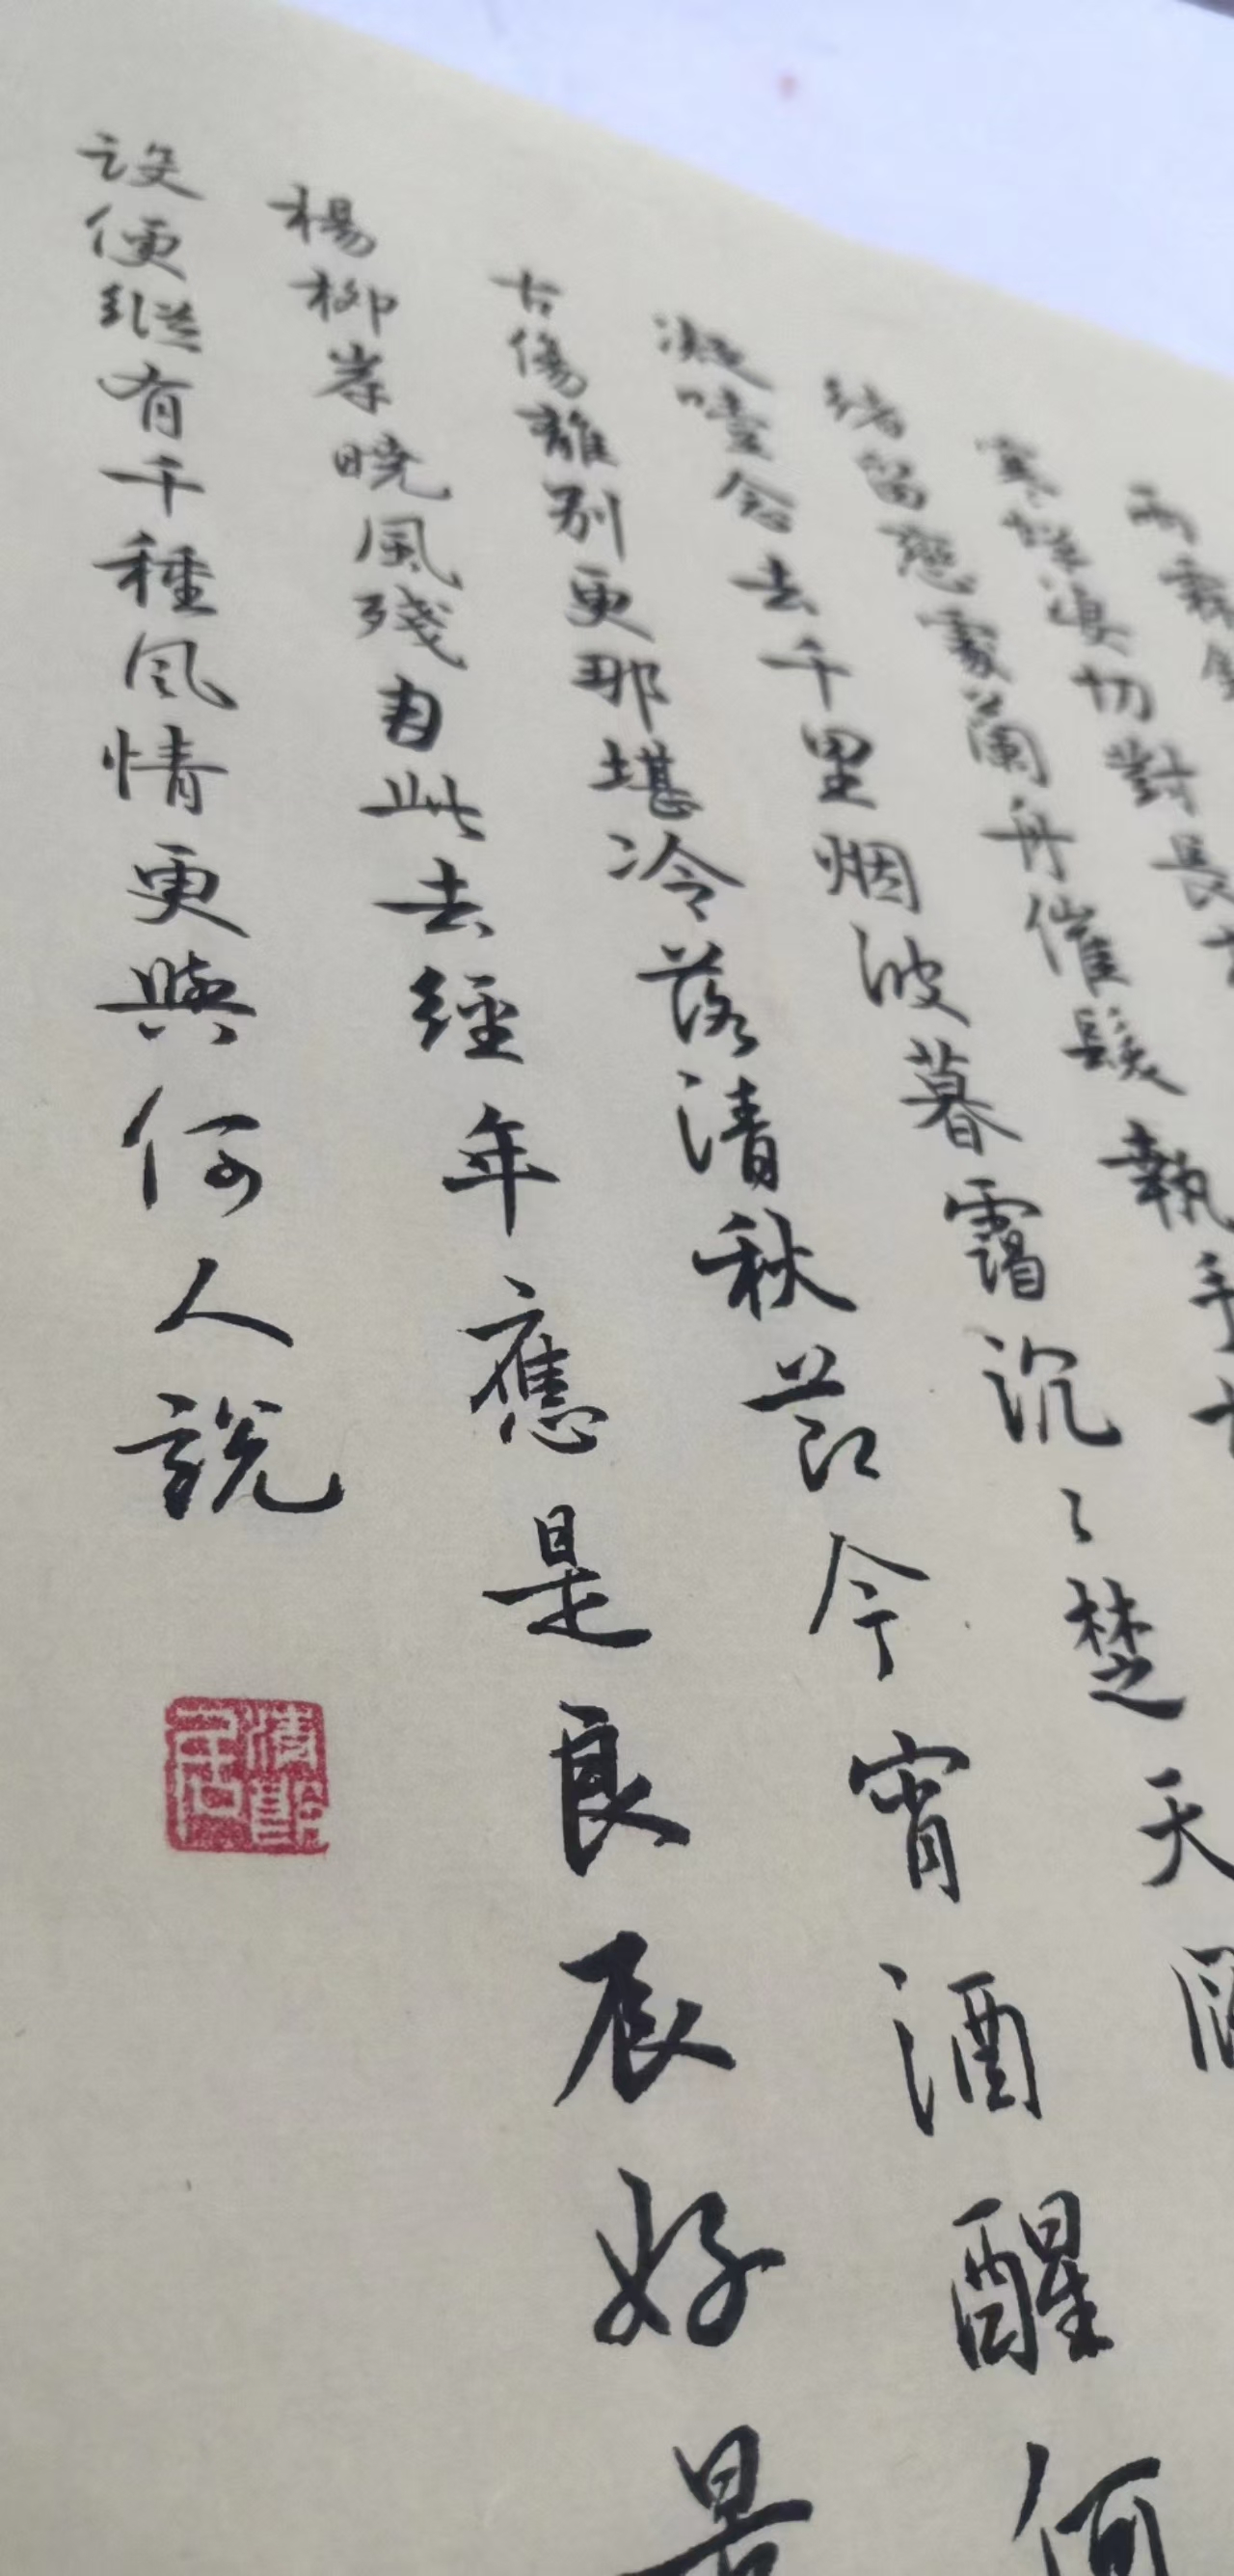 雨霖
寒蟬淒切對長
緒留戀處蘭舟催髮執手
凝噎念去千里烟波暮靄沉〻楚天闊
古傷離別更那堪冷落清秋節今宵酒醒何
楊柳岸曉風殘月此去經年應是良辰好景
設便縱有千種風情更與何人說